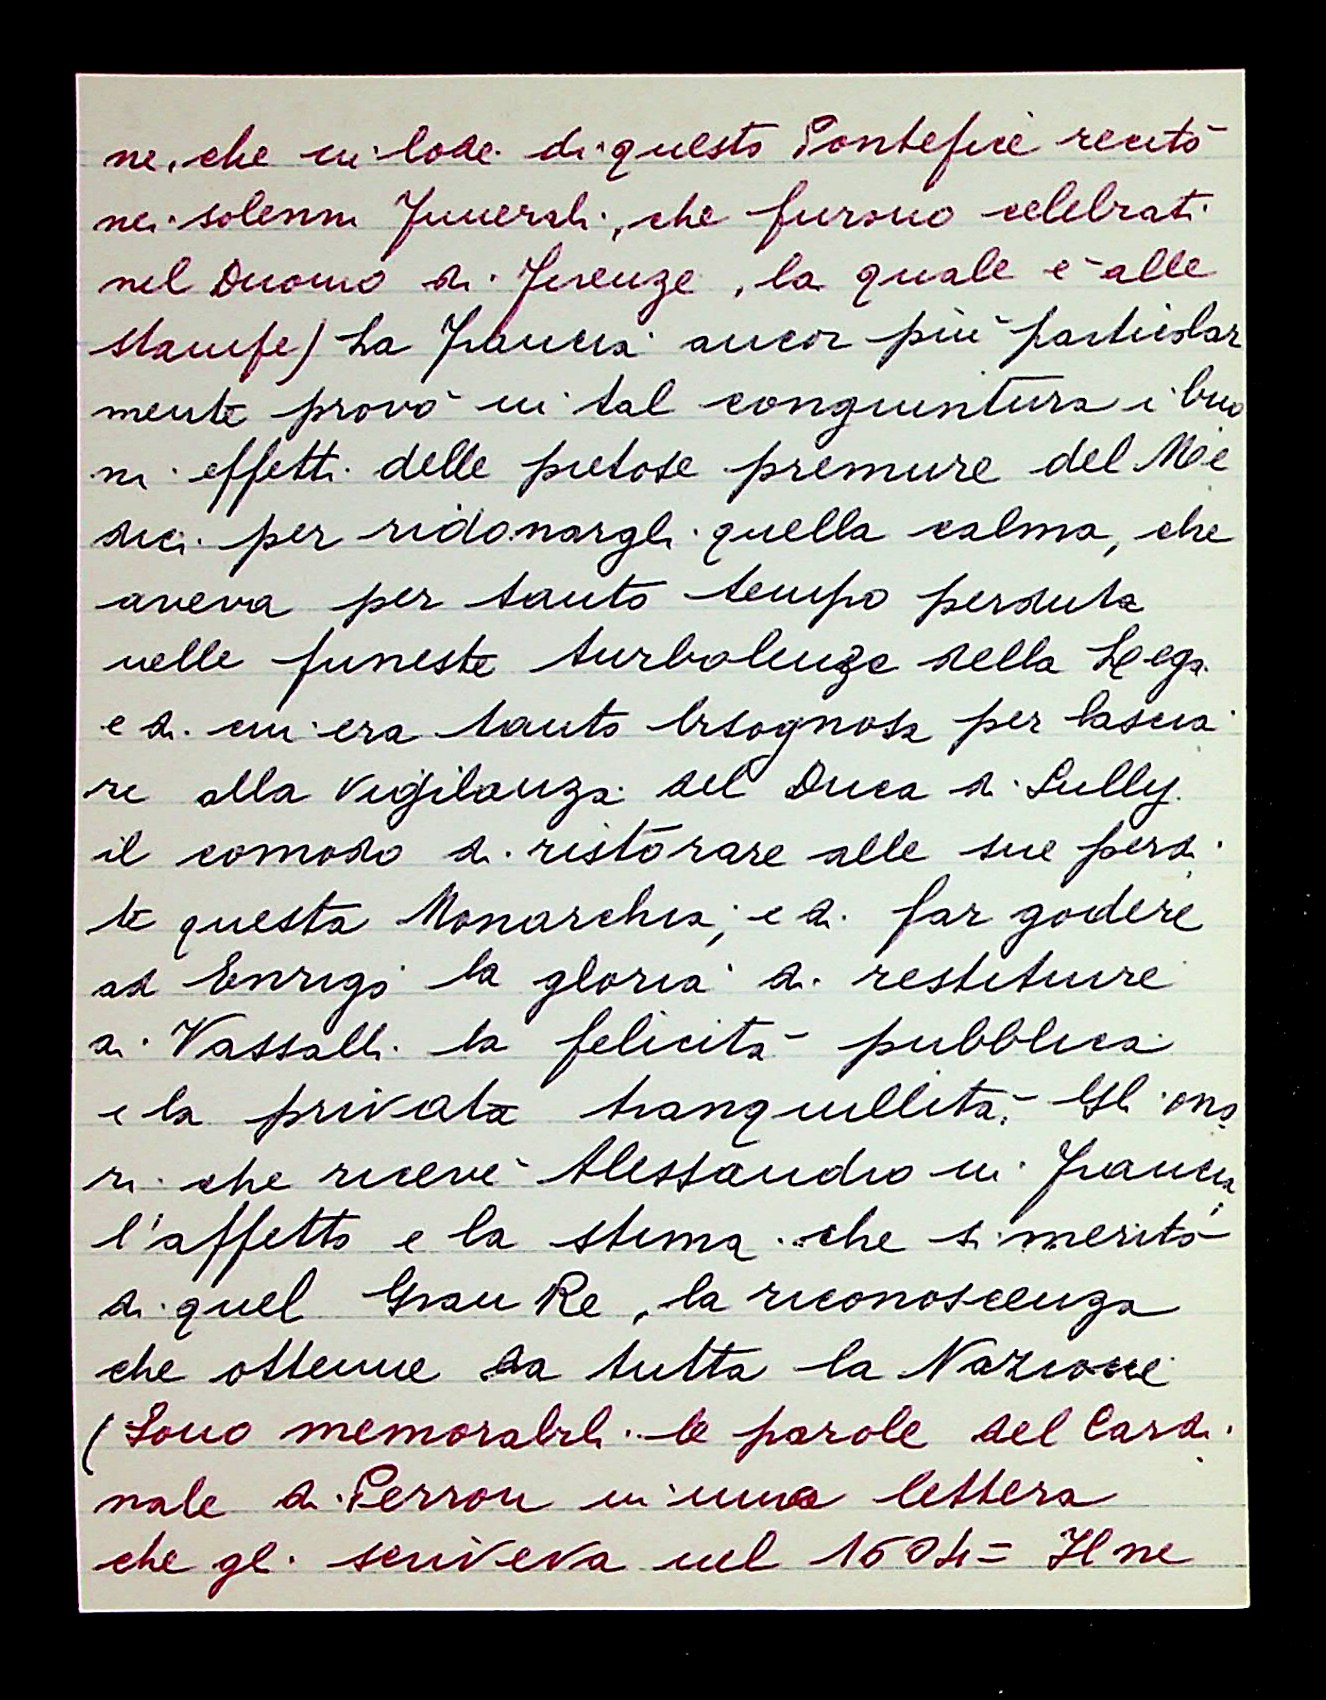 ne, che in lode di questo Pontefice recitò
nei solenni Funerali, che furono celebrati
nel Duomo di Firenze, la quale è alle
stampe) La Francia ancor più particolar
mente provò in tal conguintura i buo
ni effetti delle pietose premure del Me
dici per ridonargli quella calma, che
aveva per tanto tempo perduta
nelle funeste turbolenze della Lega
e di cui era tanto bisognosa per lascia
re alla vigilanza del Duca di Sully
il comodo di ristorare alle sue perdi
te questa Monarchia; e di far godere
ad Enrigo la gloria di restituire
ai Vassalli la felicità pubblica
e la privata tranquillità. Gli ono
ri che ricevè Alessandro in Francia,
l'affetto e la stima che si meritò
di quel Gran Re, la riconoscenza
che ottenne da tutta la Nazione
(Sono memorabili le parole del Cardi
nale di Perron in una lettera
che gli scriveva nel 1604= Il ne